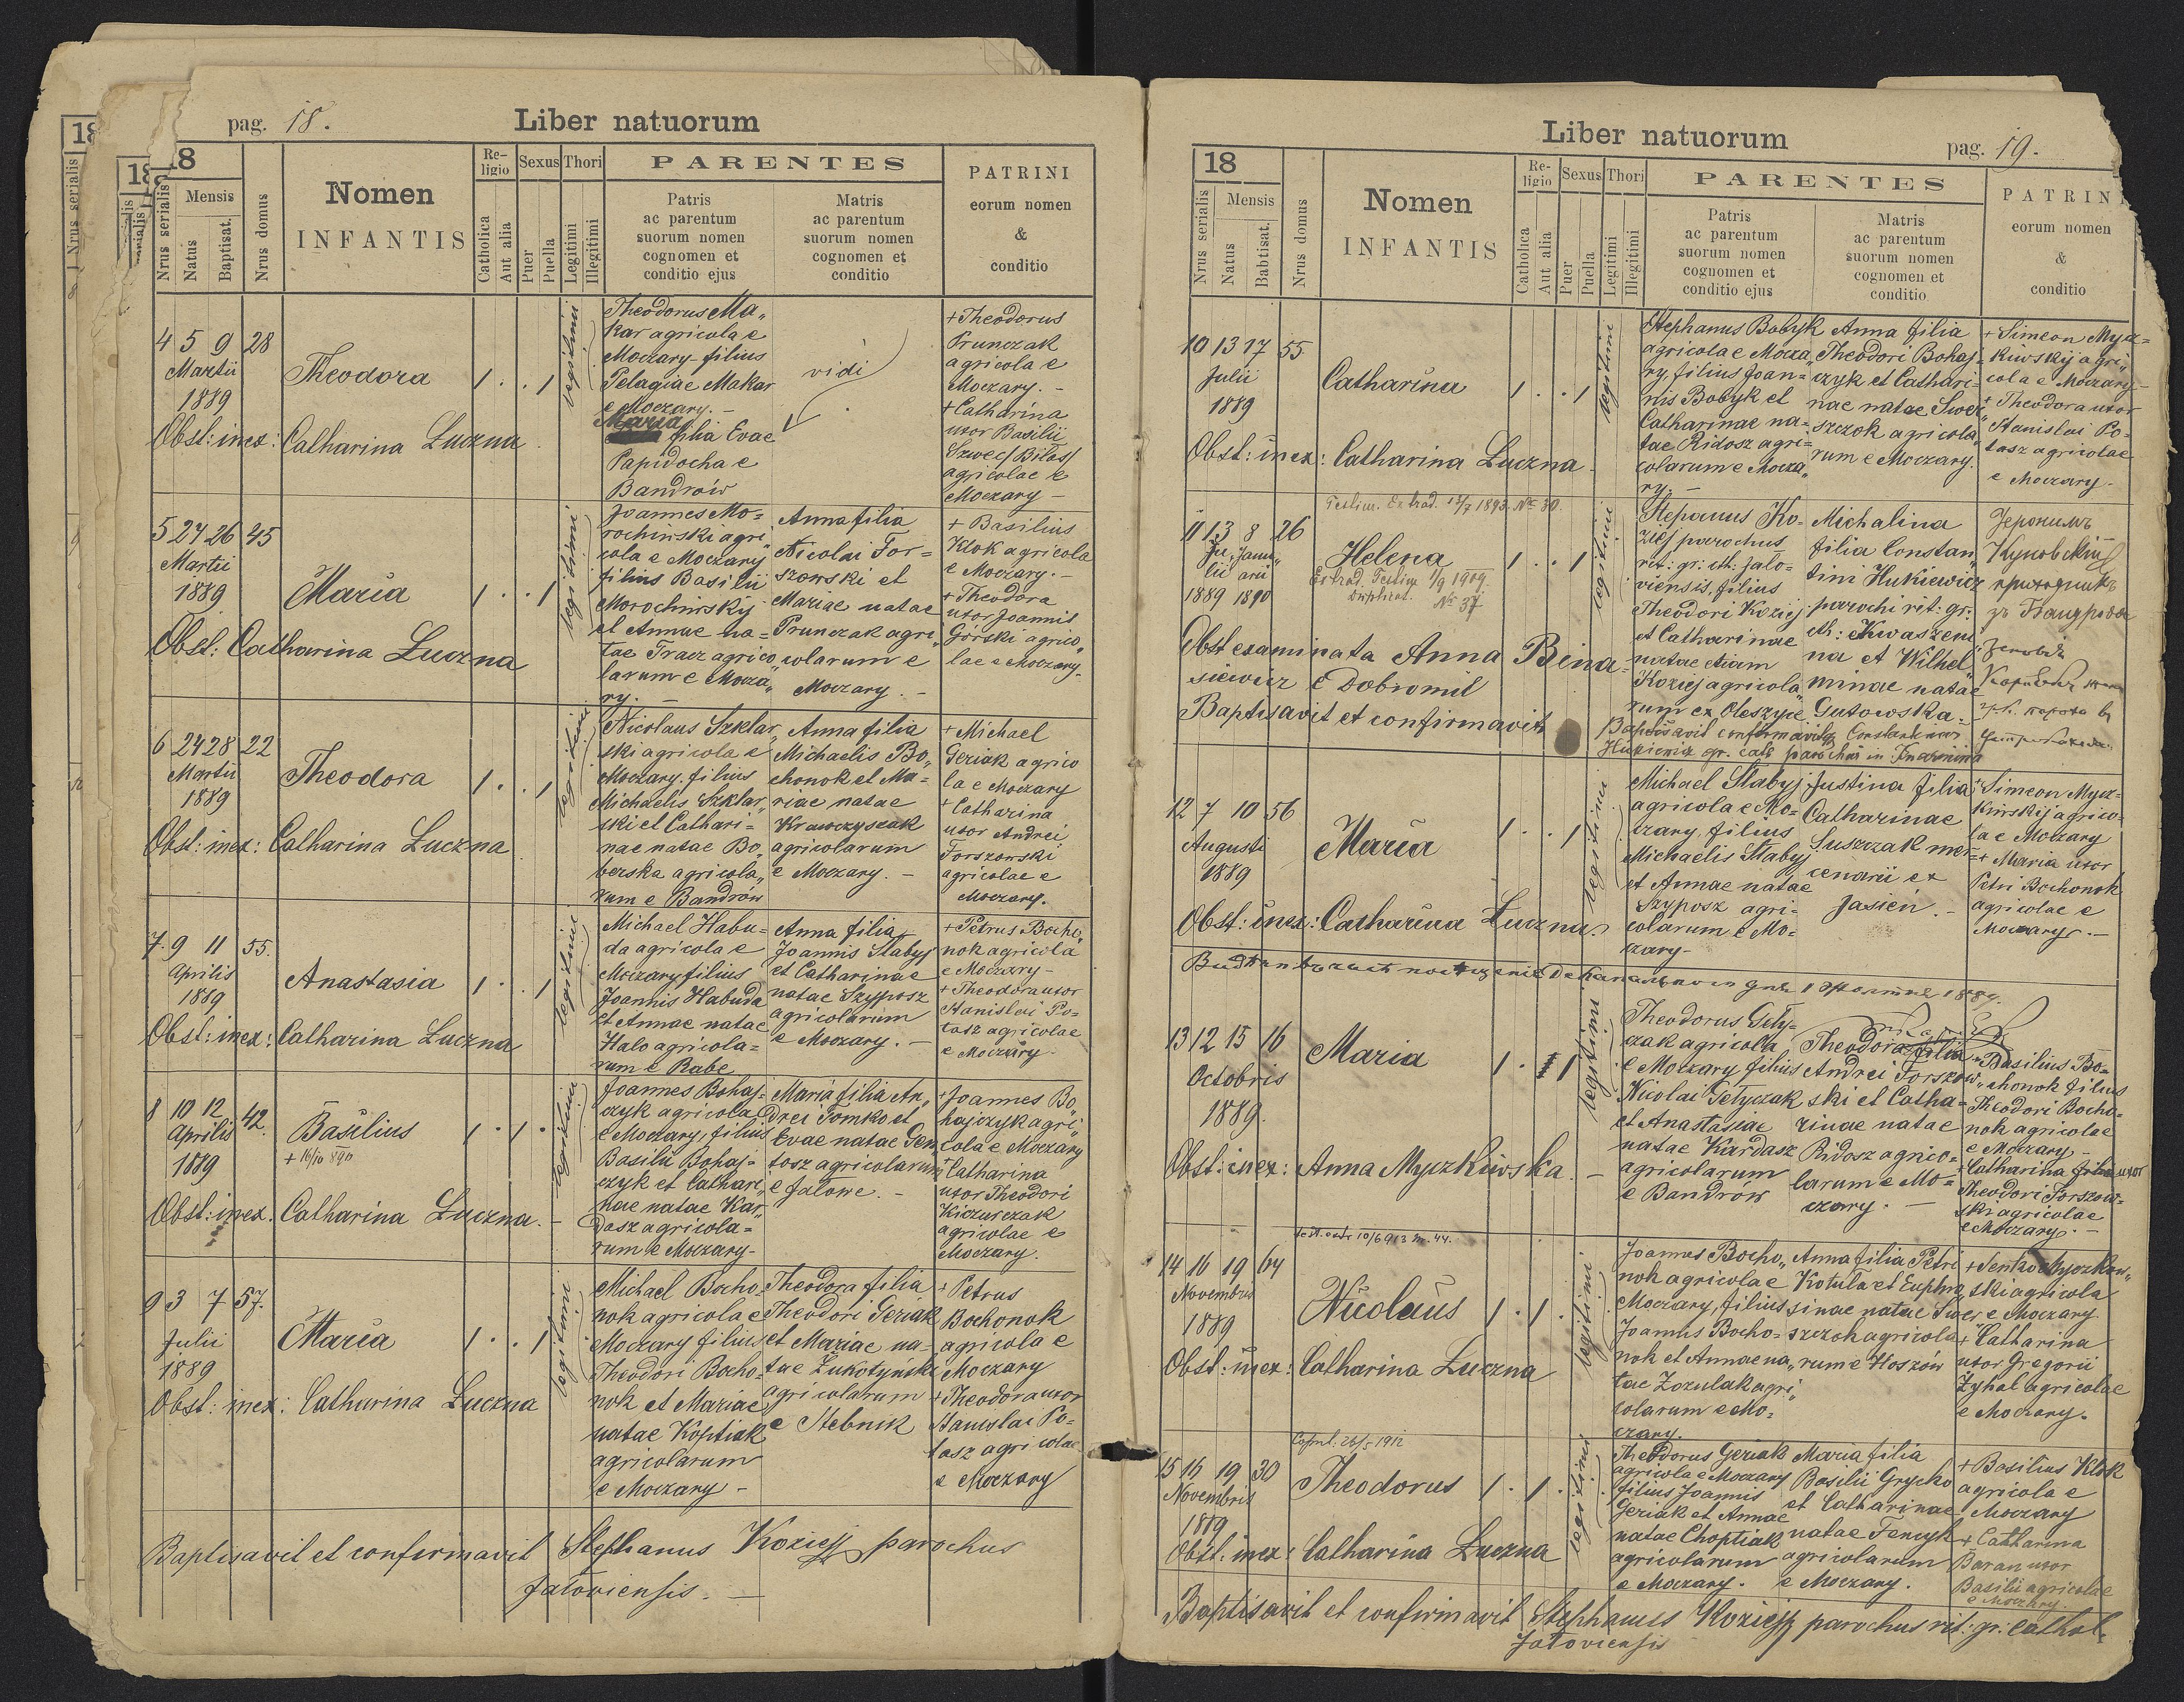 pag. 18.
Liber natuorum
18
Nrus serialis
Mensis
Natus
Baptisat.
Nrus domus
Nomen
INFANTIS
Re-
ligio
Catholica
Aut alia
Sexus
Puer
Puella
Thori
Legitimi
Illegitimi
PARENTES
Patris
ac parentum
suorum nomen
cognomen et
conditio ejus
Matris
ac parentum
suorum nomen
cognomen et
conditio
PATRINI
eorum nomen
&
conditio
4 5 9 28
Martii
1889
Theodora
1 . . 1
legitimi
Obst: inex: Catharina Luczna
Theodorus Ma„
kar agricola e
Moczary filius
Pelagiae Makar
e Moczary. –
Maria
filia Evae
Papidocha e
Bandrów
vidi
+ Theodorus
Prunczak
agricola e
Moczary. –
+ Catharina
uxor Basilii
Szwec/Bilas/
agricolae e
Moczary –
5 24 26 45
Martii
1889
Maria
1 . . 1
legitimi
Obst: Catharina Luczna
Joannes Mo=
rochiński agri
cola e Moczary
filius Basilii
Morochinsky
et Annae na=
tae Tracz agrico„
larum e Mocza„
ry. –
Anna filia
Nicolai For=
szowski et
Mariae natae
Prunczak agri„
colarum e
Moczary. –
+ Basilius
Klok agricola
e Moczary. –
+ Theodora
uxor Joannis
Górski agrico„
lae e Moczary.
6 24 28 22
Martii
1889
Theodora
1 . . 1
legitimi
Obst: inex: Catharina Luczna
Nicolaus Szklar„
ski agricola e
Moczary. filius
Michaelis Szklar„
ski et Cathari=
nae natae Bo„
berska agricola„
rum e Bandrów
Anna filia
Michaelis Bo„
chonok et Ma=
riae natae
Krawczyszak
agricolarum
e Moczary. –
+ Michael
Geriak agrico
la e Moczary
+ Catharina
uxor Andrei
Forszowski
agricolae e
Moczary.
7. 9 11 55.
Aprilis
1889
Anastasia
1 . . 1
legitimi
Obst: inex: Catharina Luczna
Michael Habu=
da agricola e
Moczary filius
Joannis Habuda
et Annae natae
Halo agricola=
rum e Rabe
Anna filia
Joannis Słabyj
et Catharinae
natae Szyposz
agricolarum
e Moczary. –
+ Petrus Bocho„
nok agricola
e Moczary –
+ Theodora uxor
Stanislai Po=
tasz agricolae
e Moczary.
8 10 12 42.
Aprilis
1889
Basilius
+ 16/10 890
1 . 1 .
legitimi
Obst: inex. Catharina Luczna. –
Joannes Bohaj=
czyk agricola
e Moczary, filius
Basilii Bohaj=
czyk et Cathari„
nae natae Kar„
dasz agricola=
rum e Moczary –
Maria filia An„
drei Tomko et
Evae natae Dem
tosz agricolarum
e Jałowe. –
+ Joannes Bo„
hajczyk agri„
cola e Moczary
+ Catharina
uxor Theodori
Kiczurczak
agricolae e
Moczary.
9 3 7 57.
Julii
1889
Maria
1 . . 1
legitimi
Obst: inex: Catharina Luczna
Michael Bocho
nok agricola e
Moczary filius
Theodori Bocho=
nok et Mariae
natae Koptiak
agricolarum
e Moczary –
Theodora filia
Theodori Geriak
et Mariae na=
tae Żukotyńska
agricolarum
e Stebnik
+ Petrus
Bochonok
agricola e
Moczary
+ Theodora uxor
Stanislai Po=
tasz agricolae
e Moczary
Baptisavit et confirmavit Stephanus Koziej parochus
Jałoviensis. –
Liber natuorum
pag. 19.
18
Nrus serialis
Mensis
Natus
Babtisat.
Nrus domus
Nomen
INFANTIS
Re-
ligio
Catholica
Aut alia
Sexus
Puer
Puella
Thori
Legitimi
Illegitimi
PARENTES
Patris
ac parentum
suorum nomen
cognomen et
conditio ejus
Matris
ac parentum
suorum nomen
cognomen et
conditio
PATRIN
eorum nomen
&
conditio
10 13 17 55.
Julii
1889
Catharina
1 . . 1
legitimi
Obst: inex: Catharina Luczna
Stephanus Bobyk
agricola e Mocza„
ry, filius Joan=
nis Bobyk et
Catharinae na=
tae Ridosz agri=
colarum e Mocza„
ry. –
Anna filia
Theodori Bohaj=
czyk et Cathari=
nae natae Swer„
szczok agricola„
rum e Moczary.
+ Simeon Mycz=
kiwskij agri„
cola e Moczary –
+ Theodora uxor
Stanislai Po=
tasz agricolae
e Moczary.
Testim. Extrad. 13/7 1893. Nr 30.
11 13 8 26
Ju Janu„
lii arii
1889 1890
Helena
Extrad. Testim 1/9 1909.
Duplicat. Nr 37
1 . . 1
legitimi
Obst examinata Anna Beina=
siewicz e Dobromil
Baptisavit et confirmavit
Stepanus Ko=
ziej parochus
rit: gr: cth: jalo=
viensis, filius
Theodori Koziej
et Catharinae
natae etiam
Koziej agricola„
rum ex Oleszyce
Michalina
filia Constan„
tini Hukiewicz
parochi rit: gr:
cth: e Kwaszeni
na et Wilhel„
minae natae
Gutowska. –
Baptisavit confirmavitq Constantinus
Hukiewicz gr. cath parochus in Kwaszenina
Єронимъ
Куновскій
приходникъ
зъ Бандрова
12 7 10 56
Augusti
1889
Maria
1 . . 1
legitimi
Obst: inex: Catharina Luczna.
Michael Słabyj
agricola e Mo=
czary, filius
Michaelis Słabyj
et Annae natae
Szyposz agri=
colarum e Mo=
czary –
Justina filia
Catharinae
Suszczak mer=
cenarii ex
Jasień. –
+ Simeon Mycz=
kiwskij agrico=
la e Moczary
+ Maria uxor
Petri Bochonok
agricolae e
Moczary. –
13 12 15 16
Octobris
1889.
Maria
1 . 1
legitimi
Obst: inex: Anna Myczkiwska. –
Theodorus Gety=
czak agricola
e Moczary filius
Nicolai Getyczak
et Anastasiae
natae Kardasz
agricolarum
e Bandrów
Theodora filia
Andrei Forszow„
ski et Catha=
rinae natae
Ridosz agrico=
larum e Mo=
czary. –
+ Basilius Bo=
chonok filius
Theodori Bocho=
nok agricolae
e Moczary –
+ Catharina uxor
Theodori Forszow=
ski agricolae
e Moczary. –
Test. extr 10/6 913 N. 44.
14 16 19 64
Novembris
1889
Nicolaus
1 . 1 .
legitimi
Obst: inex: Catharina Luczna
Joannes Bocho„
nok agricola e
Moczary, filius
Joannis Bocho=
nok et Annae na„
tae Zozulak agri„
colarum e Mo=
czary.
Anna filia Petri
Kotula et Euphro„
sinae natae Swer„
szczok agricola
rum e Hoszów
+ Senko Myczkow„
ski agricola
e Moczary
+ Catharina
uxor Gregorii
Żyhal agricolae
e Moczary.
Copul. 26/5 1912
15 16 19 30
Novembris
1889
Theodorus
1 . 1 .
legitimi
Obst: inex: Catharina Luczna
Theodorus Geriak
agricola e Moczary
filius Joannis
Geriak et Annae
natae Choptiak
agricolarum
e Moczary.
Maria filia
Basilii Grycko
et Catharinae
natae Fencyk
agricolarum
e Moczary.
+ Basilius Klok
agricola e
Moczary
+ Catharina
Baran uxor
Basilii agricolae
e Moczary.
Baptisavit et confirmavit Stephanus Koziej parochus rit: gr: cathol.
Jałoviensis